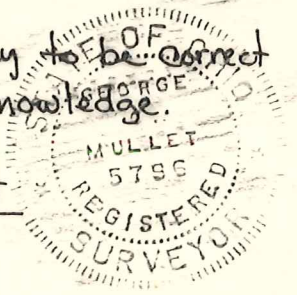 y to be correct
nowledge.
STATE OF OHIO
GEORGE
MULLET
5796
REGISTERED
SURVEYOR